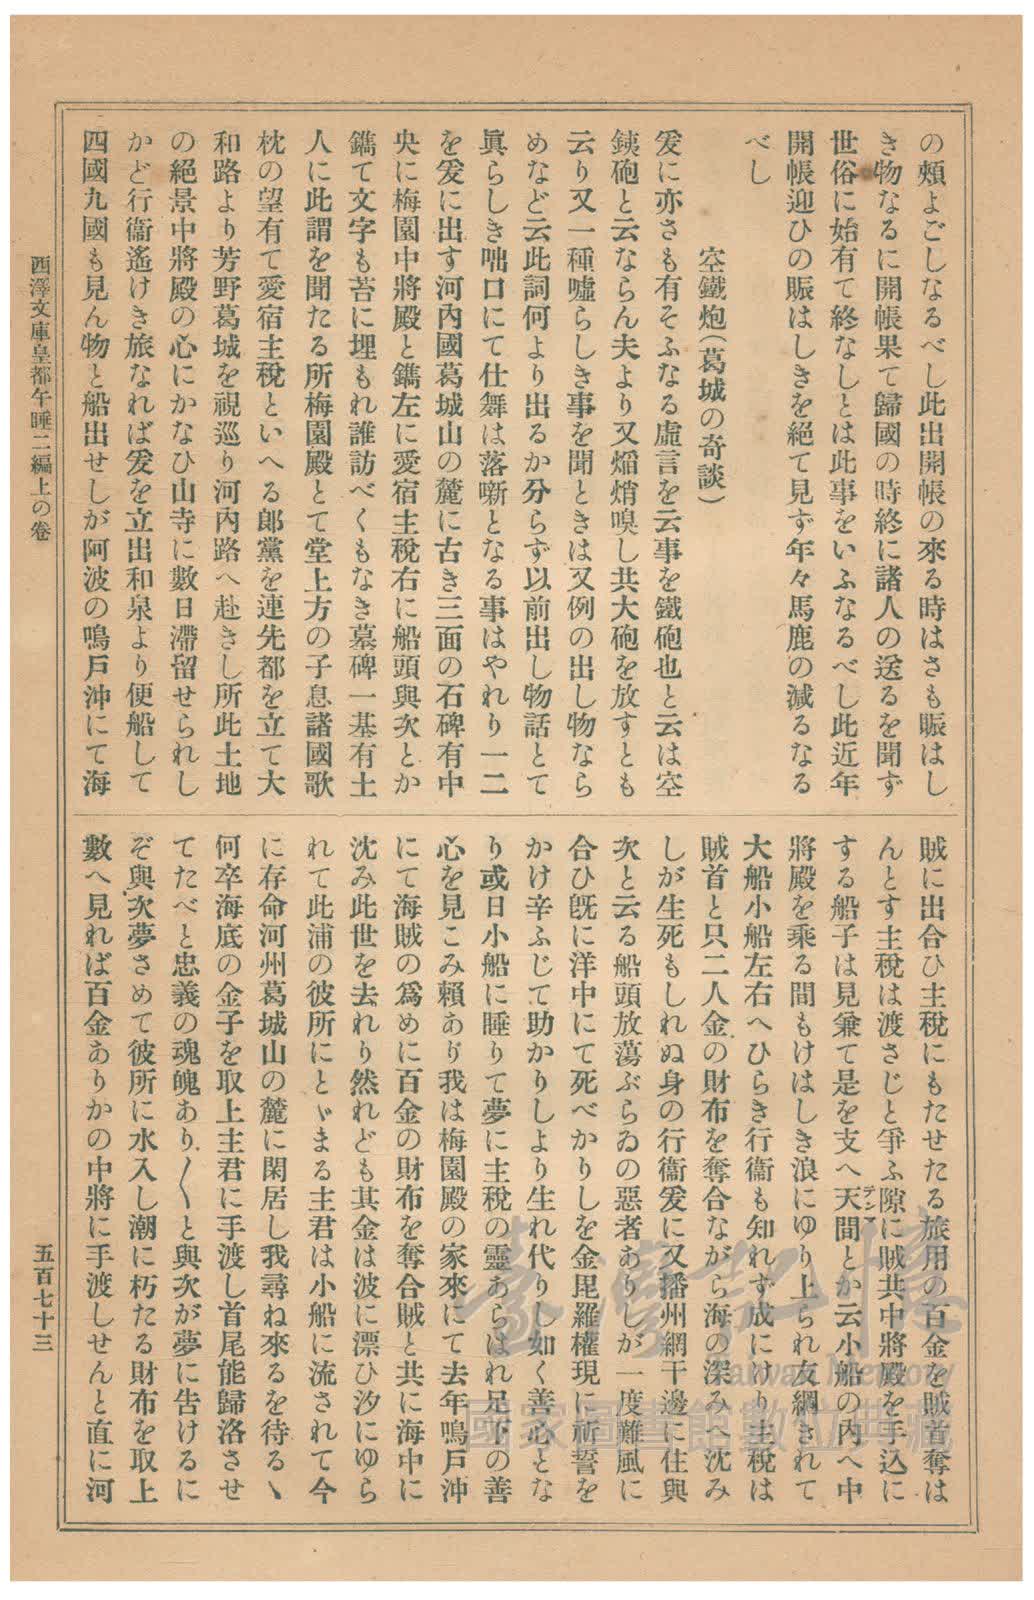 の頬よごしなるべし此出開帳の來る時はさも賑はし
き物なるに開帳果て歸國の時終に諸人の送るを聞ず
世俗に始有て終なしとは此事をいふなるべし此近年
開帳迎ひの賑はしきを絶て見ず年々馬鹿の減るなる
べし
空鐵炮(葛城の奇談)
爰に亦さも有そふなる虛言を云事を鐵砲也と云は空
銕砲と云ならん夫より又焔焇嗅し共大砲を放すとも
云り又一種噓らしき事を聞ときは又例の出し物なら
めなど云此詞何より出るか分らず以前出し物話とて
眞らしき咄口にて仕舞は落噺となる事はやれり一二
を爰に出す河內國葛城山の麓に古き三面の石碑有中
央に梅園中將殿と鐫左に愛宿主稅右に船頭與次とか
鐫て文字も苔に埋もれ誰訪べくもなき墓碑一基有土
人に此謂を聞たる所梅園殿とて堂上方の子息諸國歌
枕の望有て愛宿主稅といへる郞黨を連先都を立て大
和路より芳野葛城を視巡り河內路へ赴きし所此土地
の絕景中將殿の心にかなひ山寺に數日滯留せられし
かど行衞遙けき旅なれば爰を立出和泉より便船して
四國九國も見ん物と船出せしが阿波の鳴戶沖にて海
賊に出合ひ主稅にもたせたる旅用の百金を賊首奪は
んとす主稅は渡さじと爭ふ隙に賊共中將殿を手込に
する船子は見兼て是を支へ天間とか云小船の內へ中
テンマ
將殿を乘る間もけはしき浪にゆり上られ友綱きれて
大船小船左右へひらき行衞も知れず成にけり主稅は
賊首と只二人金の財布を奪合ながら海の深みへ沈み
しが生死もしれぬ身の行衞爰に又播州網干邊に住與
次と云る船頭放蕩ぶらゐの惡者ありしが一度難風に
合ひ旣に洋中にて死べかりしを金毘羅權現に祈誓を
かけ辛ふじて助かりしより生れ代りし如く善心とな
り或日小船に睡りて夢に主稅の靈あらはれ足下の善
心を見こみ賴あり我は梅園殿の家來にて去年鳴戶沖
にて海賊の爲めに百金の財布を奪合賊と共に海中に
沈み此世を去れり然れども其金は波に漂ひ汐にゆら
れて此浦の彼所にとゞまる主君は小船に流されて今
に存命河州葛城山の麓に閑居し我尋ね來るを待るゝ
何卒海底の金子を取上主君に手渡し首尾能歸洛させ
てたべと忠義の魂魄あり〳〵と與次が夢に告けるに
ぞ與次夢さめて彼所に水入し潮に朽たる財布を取上
數へ見れば百金ありかの中將に手渡しせんと直に河
西澤文庫皇都午睡二編上の卷
五百七十三
臺灣記憶
Taiwan Memory
國家圖書館數位典藏